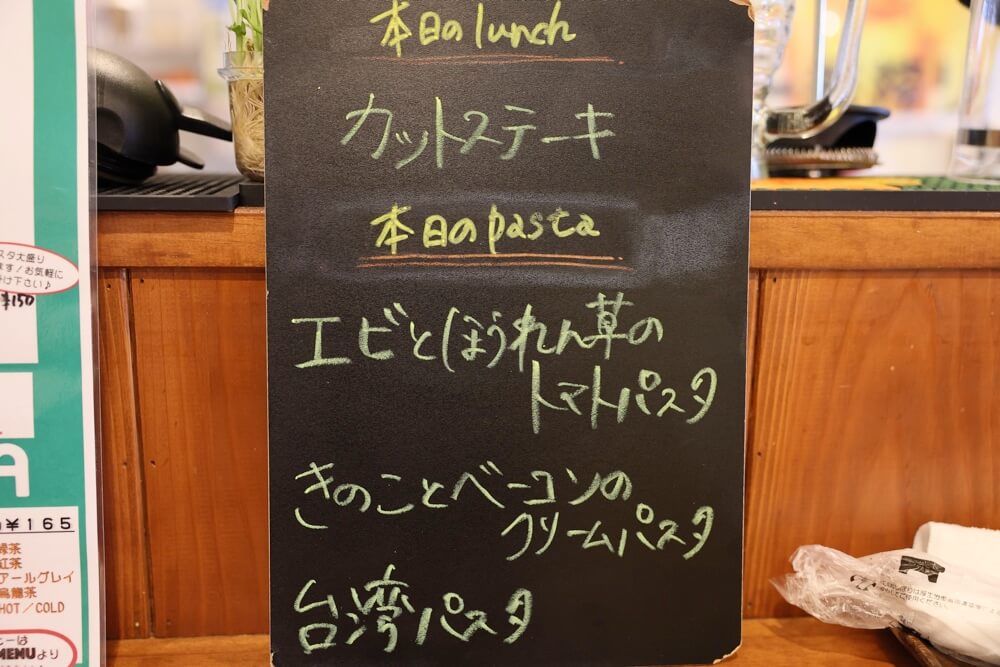 本日のlunch
カットステーキ
本日のpasta
エビとほうれん草の
トマトパスタ
きのことベーコンの
クリームパスタ
台湾パスタ
スタ大盛り
ます！お気軽に
け下さい♪
¥150
A
¥165
緑茶
紅茶
アールグレイ
烏龍茶
HOT／COLD
ーは
MENUより